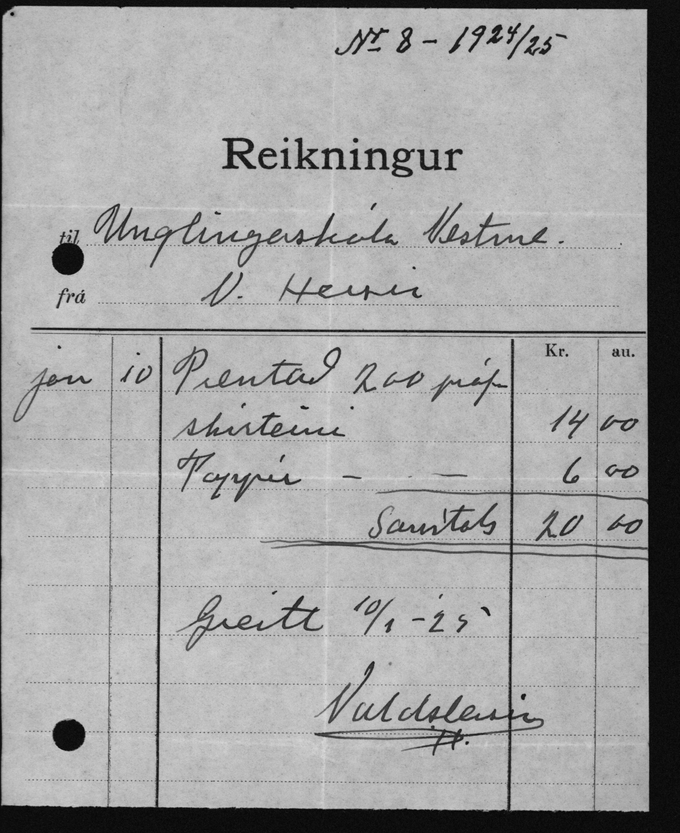 Nr 8 - 1924/25
Reikningur
til Unglingaskóla Vestme.
frá V. Hersir
Kr. au.
jan 10 Prentad 200 próf-
skirteini 14 00
Pappír - - - 6 00
Samtals 20 00
Greitt 10/1 - 25